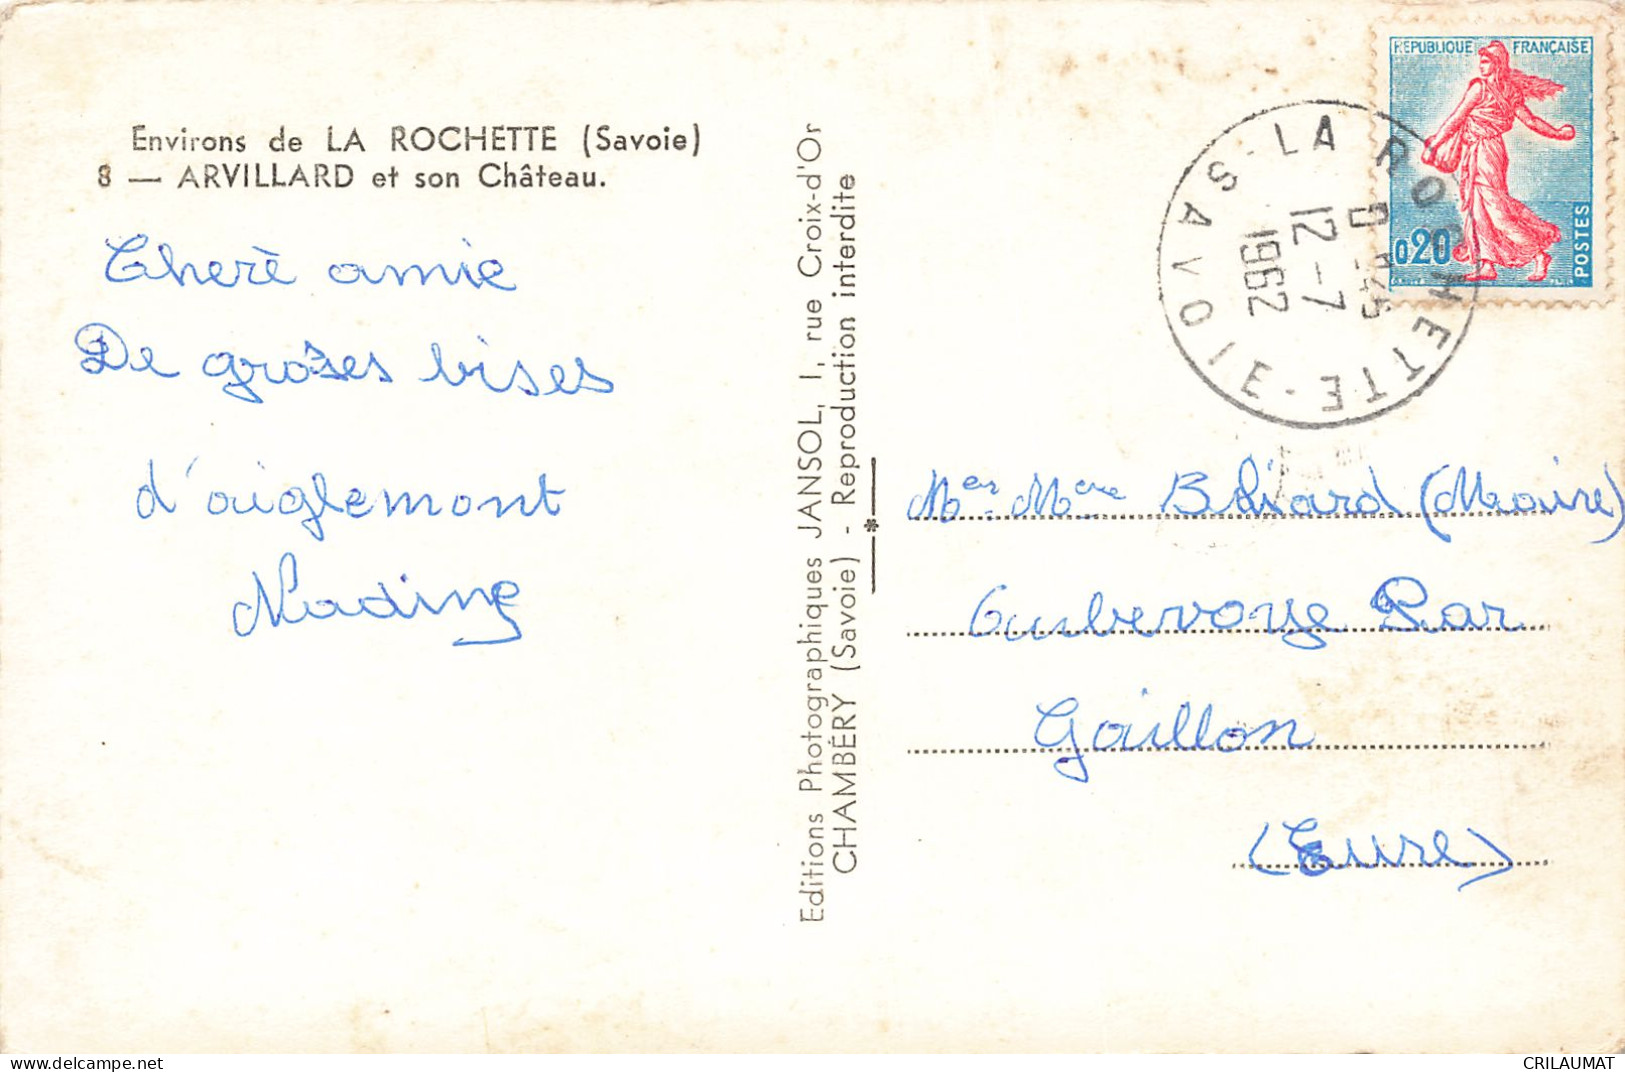 Environs de LA ROCHETTE (Savoie)
8 — ARVILLARD et son Château.
Cherè amie
De groses bises
d'aiglemont
Nadine
Editions Photographiques JANSOL, 1, rue Croix-d'Or
CHAMBÉRY (Savoie) - Reproduction interdite
REPUBLIQUE FRANÇAISE
0,20
POSTES
LA ROCHETTE - SAVOIE
12-7
1962
Mer Mme Bliard (Maire)
Aubevoye Par
Gaillon
(Eure)
delcampe.net
CRILAUMAT